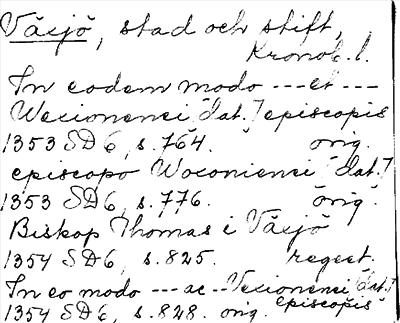 Växjö, stad och stift,
Kronob. l.
In eodem modo --- et ---
Wecionensi [dat.] episcopis
1353 SD 6, s. 764. orig.
episcopo Woconiensi [dat.]
1353 SD 6, s. 776. orig.
Biskop Thomas i Växjö
1354 SD 6, s. 825. regest.
In eo modo --- ac -- Vecionensi [dat.]
1354 SD 6, s. 828. orig. episcopis